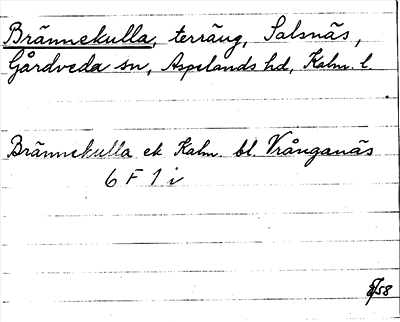 Brännekulla, terräng, Salsnäs,
Gårdveda sn, Aspelands hd, Kalm. l.
Brännekulla ek Kalm. bl. Vrånganäs
6 F 1 i